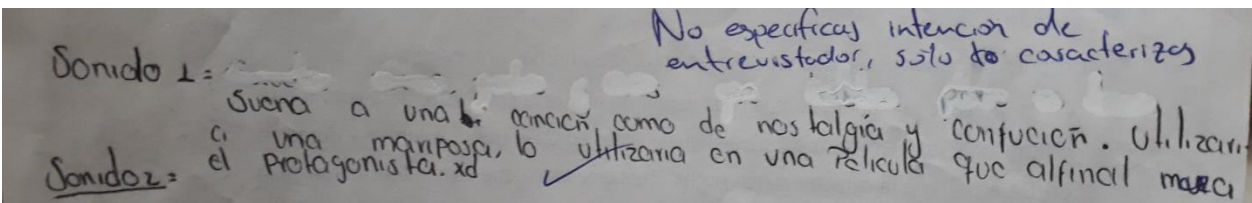 No especificas intención de
entrevistador, solo lo caracterizas
Sonido 1:
Suena a una canción, como de nostalgia y confución. Utilizaria
a una mariposa, lo utilizaria en una Pelicula que alfinal muera
Sonido2: el protagonista. xd